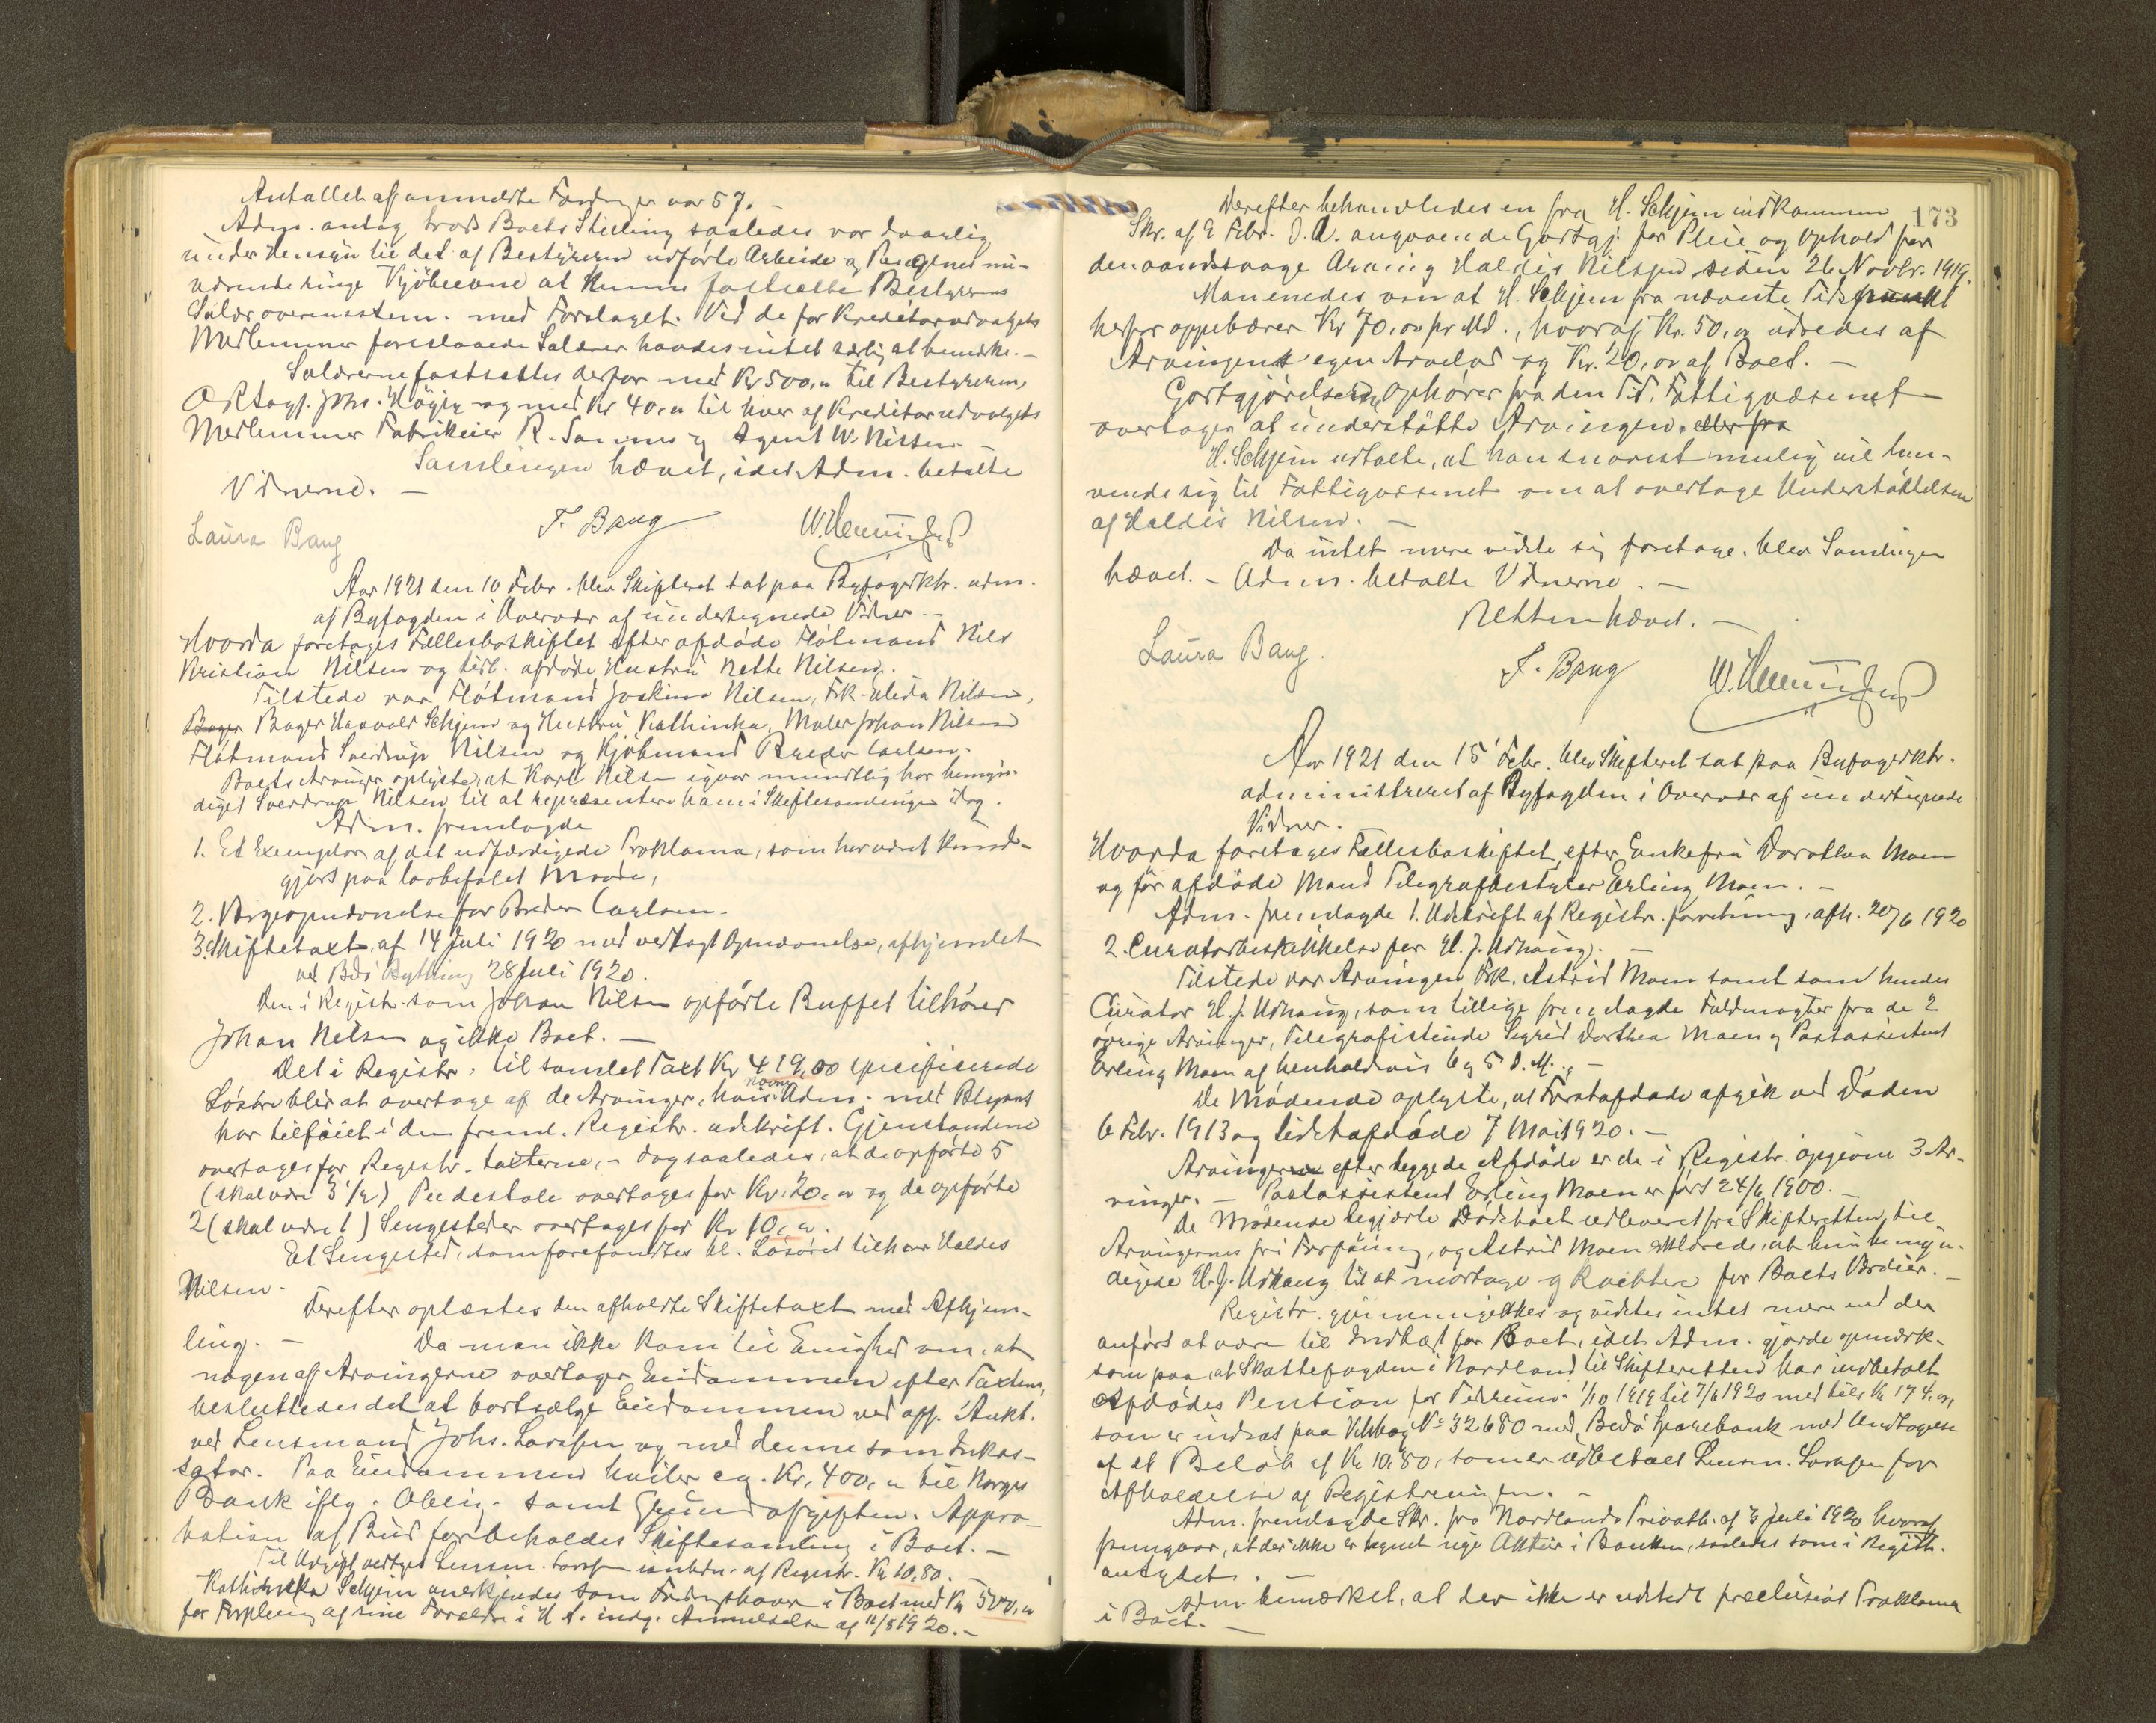 Antallet af anmeldte Fordringer var 57. –
Adm. antog trods Boets Stilling saaledes var daarlig
under Hensyn til det af Bestyreren udførte Arbeide og Pengenes nu-
værende ringe Kjøbeevne at kunne fastsætte Bestyrerens
Salær overensstem. med Forslaget. Ved de for Kreditorudvalgets
Medlemmer foreslaaede Salærer havdes intet særlig at bemærke. –
Salærerne fastsættes derfor med Kr 500,00 til Bestyreren,
ORSagf. Johs. Høgly og med Kr 40,00 til hver af Kreditorudvalgets
Medlemmer Fabrikeier R. og Agent W. Nissen. –
Samlingen hævet, idet Adm. betalte
Vidnerne. –
Laura Bang F. Bang W. Henningsen
Aar 1921 den 10 Febr. blev Skifteret sat paa Byfogedktr. adm.
af Byfogden i Overvær af undertegnede Vidner. –
Hvorda foretages Fællesboskiftet efter afdøde Fløtmand Nils
Kristian Nilsen og tidl. afdøde Hustru Nette Nilsen.
Tilstede var Fløtmand Joakim Nilsen, Frk. Alida Nilsen,
Bager Bager Haavald Schjem og Hustru Kathinka, Maler Johan Nilsen
Fløtmand Sverdrup Nilsen og Kjøbmand Breder Carlsen.
Boets Arvinger oplyste, at Karl Nilsen igaar mundtlig har bemyn-
diget Sverdrup Nilsen til at repræsentere ham i Skiftesamlingen idag.
Adm. fremlagde
1. Et Exemplar af det udfærdigede Proklama, som har været kund-
gjort paa lovbefalet Maade,
2. Værgeopnævnelse for Breder Carlsen.
3. Skiftetaxt af 14 Juli 1920 med vedtagt Opnævnelse, afhjemlet
ved Bodø Bything 28 Juli 1920.
Den i Registr. som Johan Nilsen opførte Buffet tilhører
Johan Nilsen og ikke Boet. –
Det i Registr. til samlet Taxt Kr 419,00 specificerede
Løsøre blir at overtage af de Arvinger, hvis Navne Adm. med Blyant
har tilføiet i den freml. Registr. udskrift. Gjenstandene
overtages for Registr. taxterne, – dog saaledes, at de opførte 5
(skal være 3 1/2) Pedestale overtages for Kr. 20,00 og de opførte
2 (skal være 1) Sengesteder overtages for Kr 10,00.
Et Sengested, som forefandtes bl. Løsøret tilhører Haldis
Nilsen.
Derefter oplæstes den afholdte Skiftetaxt med Afhjem-
ling. – Da man ikke kom til Enighed om, at
nogen af Arvingerne overtager Eiendommen efter Taxten,
besluttedes det at bortsælge Eiendommen ved off. Aukt.
ved Lensmand Johs. Larssen og med denne som Inkas-
sator. Paa Eiendommen hviler ca. Kr. 400,00 til Norges
Bank iflg. Oblig. samt Grundafgiften. Appro-
bation af Bud forbeholdes Skiftesamling i Boet. –
Til Udgift vedtoges Lensm. Larssen for af Registr. Kr 10,80. –
Kathinka Schjem anerkjendes som Fordringshaver i Boet med Kr 500,00
for Forpleining af sine Forældre i H. t. indg. Anmeldelse af 11/8 1920. –
173
Derefter behandledes en fra H. Schjem indkommen
Skr. af 8 Febr. d. A. angaaende Godtgj. for Pleie og Ophold for
den aandssvage Arving Haldis Nilsen siden 26 Novbr. 1919.
Man enedes om at H. Schjem fra nævnte Tidspunkt
herfor oppebærer Kr 70,00 pr Md., hvoraf Kr. 50,00 udredes af
Arvingens egen Arvelod og Kr. 20,00 af Boet. –
Godtgjørelsen ophører fra den Tid, Fattigvæsenet
overtager at understøtte Arvingen. eller fra
H. Schjem udtalte, at han snarest mulig vil hen-
vende sig til Fattigvæsenet om at overtage Understøttelsen
af Haldis Nilsen. –
Da intet mere vidste sig foretage, blev Samlingen
hævet. – Adm. betalte Vidnerne. –
Retten hævet. –
Laura Bang. F. Bang W. Henningsen
Aar 1921 den 15 Febr. blev Skifteret sat paa Byfogedktr.
administreret af Byfogden i Overvær af undertegnede
Vidner.
Hvorda foretages Fællesboskiftet efter Enkefru Dorothea Moen
og før afdøde Mand Telegrafbestyrer Erling Moen. –
Adm. fremlagde 1. Udskrift af Registr. forretning, afh. 20/6 1920
2. Curatorbeskikkelse for H. J. Udhaug. –
Tilstede var Arvingen Frk. Astrid Moen samt som hendes
Curator H. J. Udhaug, som tillige fremlagde Fuldmagter fra de 2
øvrige Arvinger, Telegrafistinde Sigrid Dorthea Moen og Postassistent
Erling Moen af henholdsvis 6 og 5 d. M. –
De Mødende oplyste, at Førstafdøde afgik ved Døden
6 Febr. 1913 og sidstafdøde 7 Mai 1920. –
Arvingerne efter begge de Afdøde er de i Registr. opgivne 3 Ar-
vinger. – Postassistent Erling Moen er født 24/6 1900. –
De Mødende begjærte Dødsboet udleveret fra Skifteretten til
Arvingernes fri Forføining, og Astrid Moen erklærede, at hun bemyn-
digede H. J. Udhaug til at modtage og kvittere for Boets Værdier. –
Registr. gjennemgikkes og vidstes intet mere end der
anført at være til Indtægt for Boet, idet Adm. gjorde opmærk-
som paa, at Skattefogden i Nordland til Skifteretten har indbetalt
Afdødes Pention for Tidsrum 1/10 1919 til 7/6 1920 med tils. Kr 174,00,
som er indsat paa Vihbog No 32680 med Bodø Sparebank med Undtagelse
af et Beløb af Kr 10,80, som er udbetalt Lensm. Larssen for
Afholdelse af Registreringen. –
Adm. fremlagde Skr. fra Nordlands Privatb. af 3 Juli 1920 hvoraf
fremgaar, at der ikke er tegnet nye Aktier i Banken, saaledes som i Registr.
antydet. –
Adm. bemærket, at der ikke er udstedt præclusivt Proklama
i Boet. –